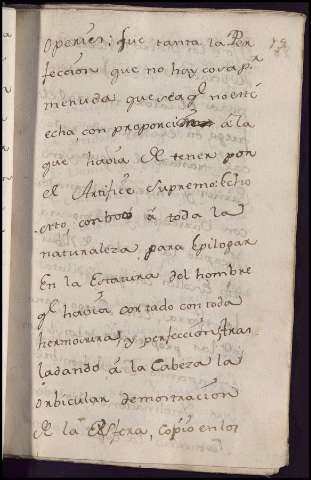 operies: fue tanta la Per
feccion que no hay cosa pr
menuda que sea q̃ no esti
echa, con proporcion á la
que havia de tener por
el Artifice supremo: Echo
erto, combocó á toda la
naturaleza, para Epilogar
En la Estatura del hombre
q̃ havia cortado con toda
hermosura, y perfeccion, tras
ladando á la Cabeza la
orbicular demostracion
de la Esfera, copió en los